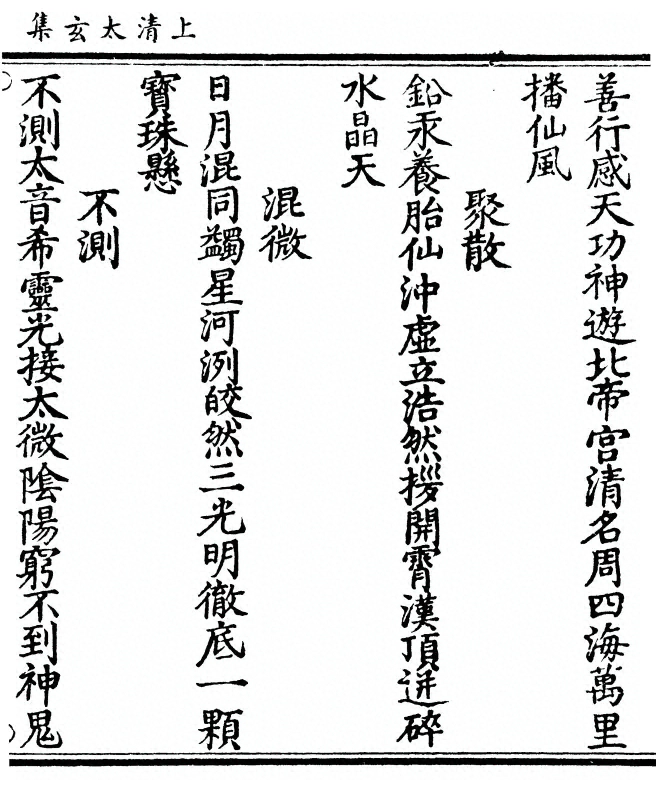 上清太玄集
善行感天功神遊北帝宮清名周四海萬里
播仙風
聚散
鉛汞養胎仙沖虛立浩然拶開霄漢頂迸碎
水晶天
混微
日月混同蠲星河洌皎然三光明徹底一顆
寶珠懸
不測
不測太音希靈光接太微陰陽窮不到神鬼